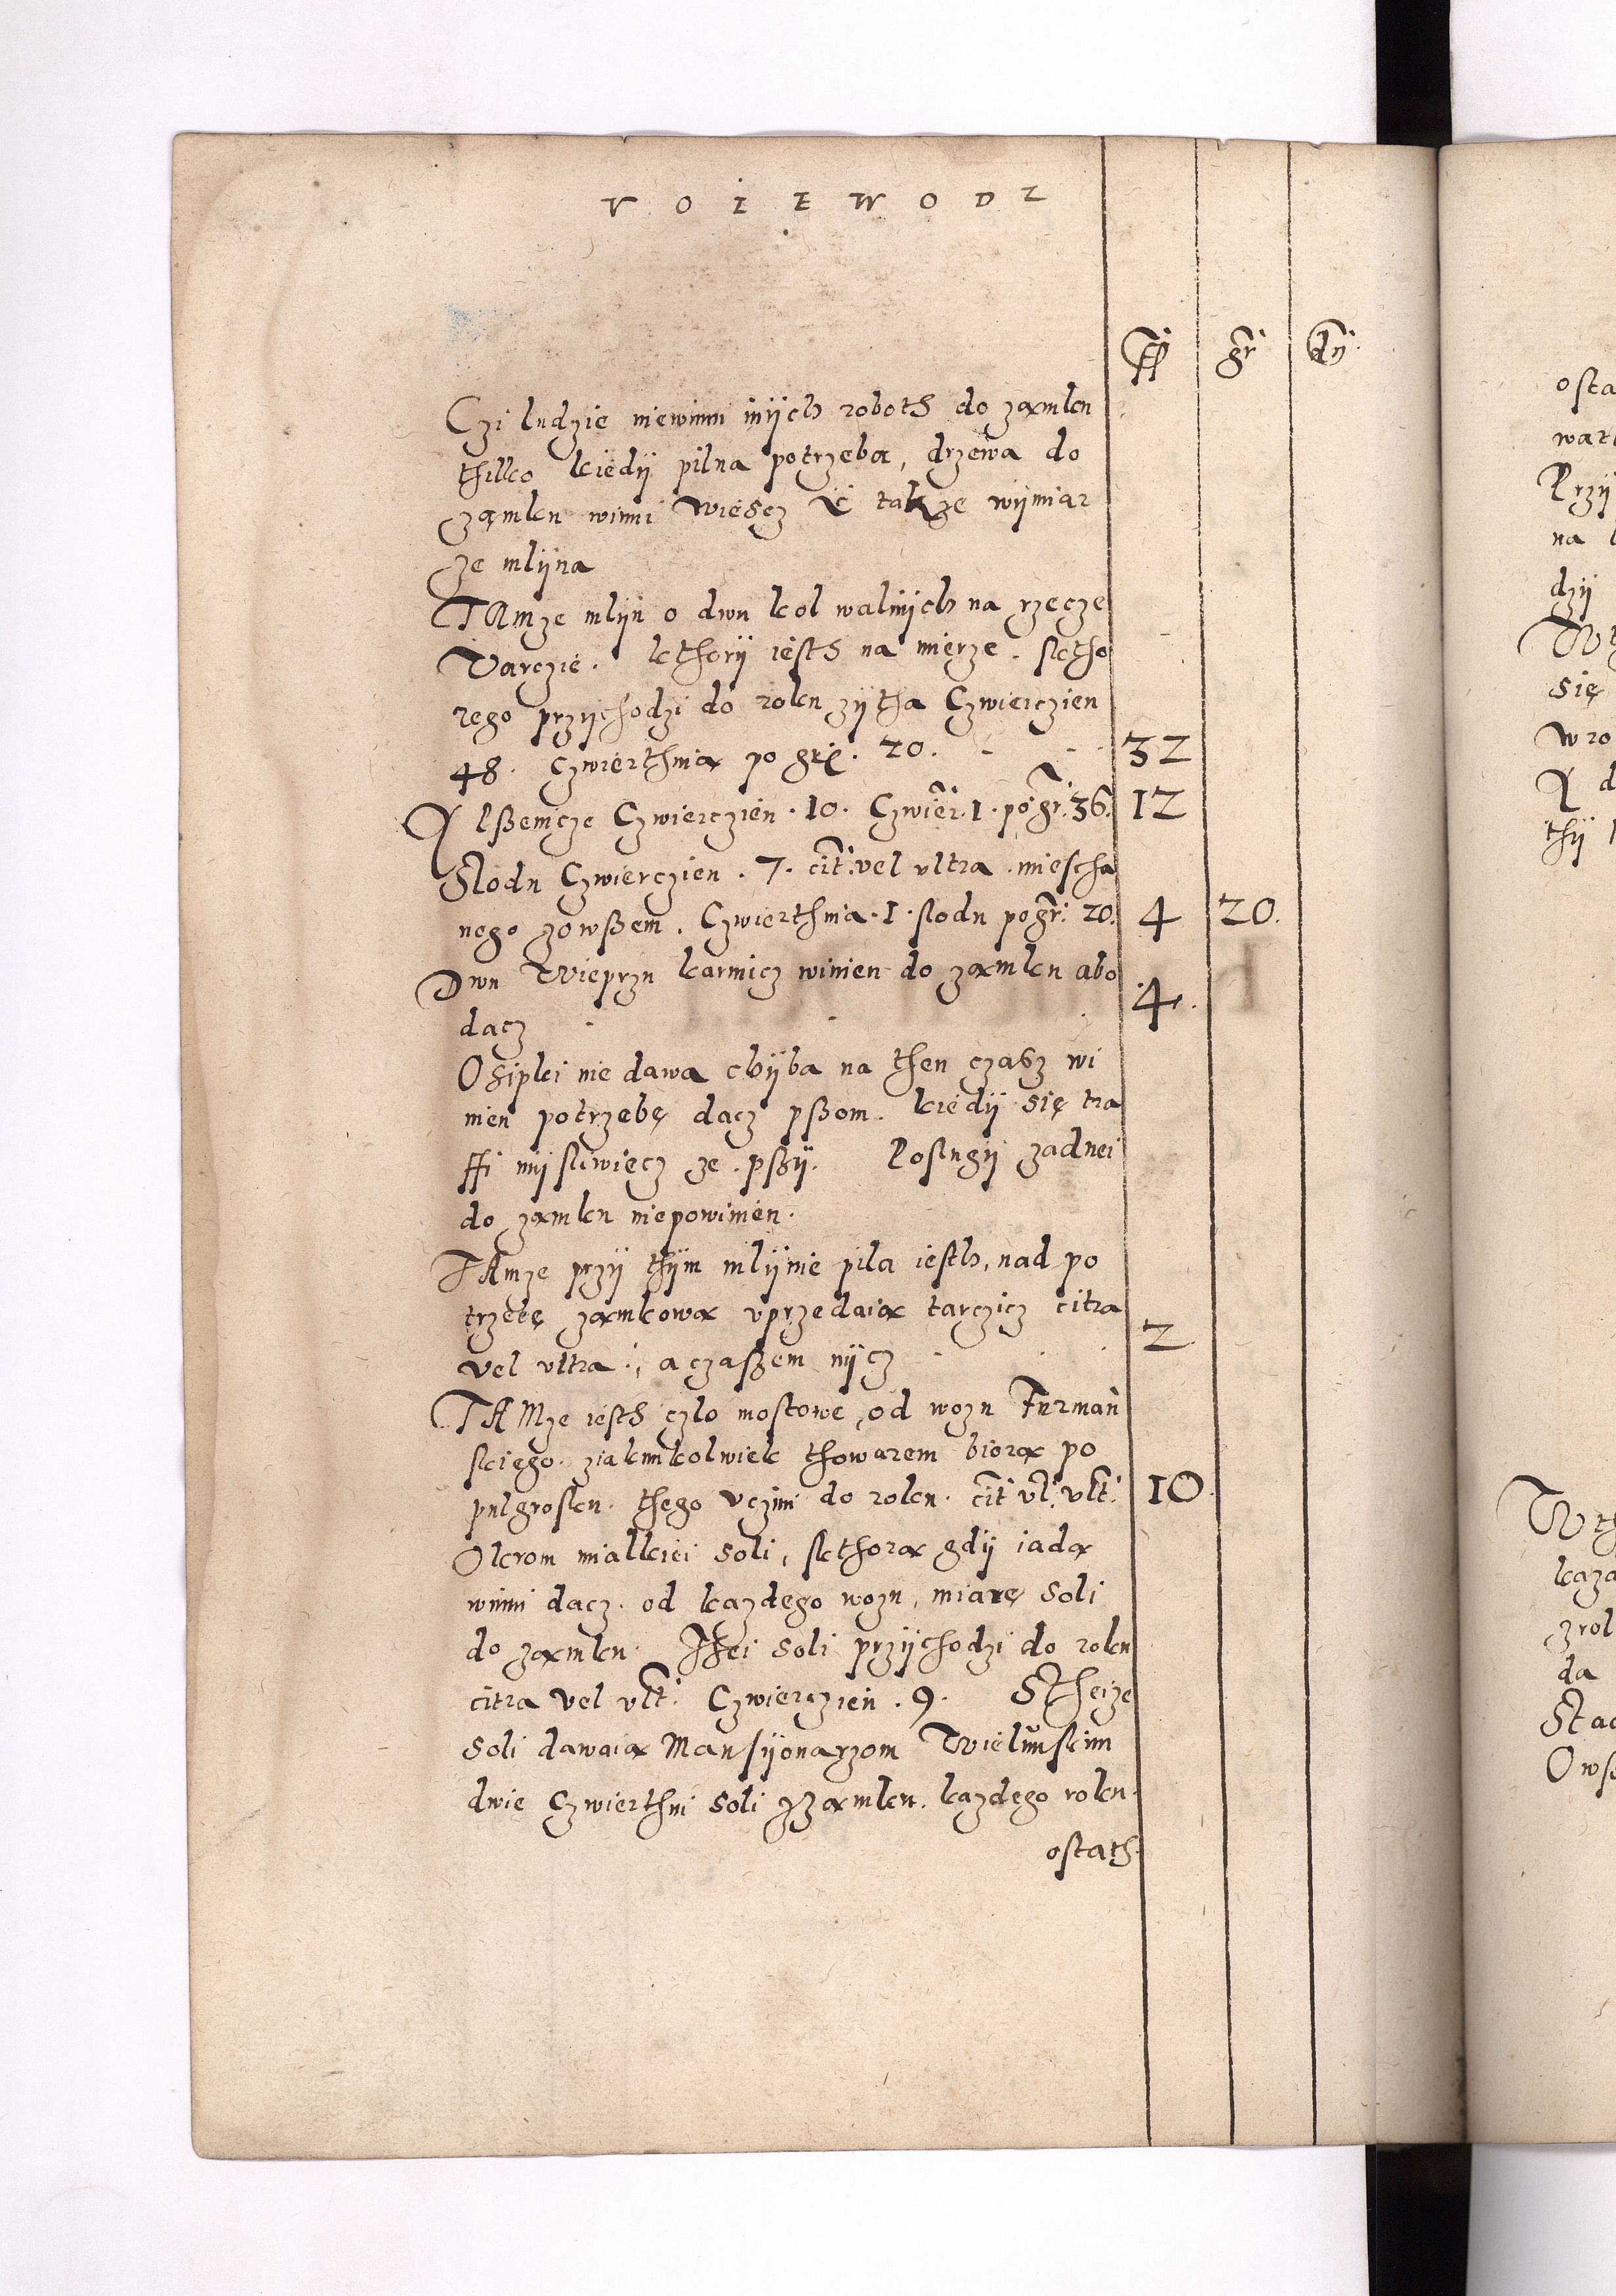 VOIEWODZ
ff gr dn
Czi ludzie niewinni inijch roboth do zamku
thilko kiedij pilna potrzeba, drzewa do
zamku winni wiescz & takze wijmiar
ze mlijna
TAmze mlijn o dwu kol walnijch na rzecze
Varczie. kthorij iesth na mierze. sktho
rego przijchodzi do roku zijtha Czwierczien
48. czwierthnia po gr. 20. 32
lßenicze Czwierczien. 10. Czwier. 1. po gr. 36. 12
Slodu Czwierczien. 7. cit: vel vltra. miescha
nego zowßem. Czwierthnia. 1. slodu po gr: 20. 4 20.
Dwu Wieprzu karmicz winien do zamku abo
dacz 4.
Osipki nie dawa chijba na then czasz wi
nien potrzebę dacz pßom. kiedij się tra
ffi mijsliwiecz ze. pßij. Poslugij zadnei
do zamku niepowinien.
TAmze przij thijm mlijnie pila iesth, nad po
trzebę zamkowa vprzedaia tarczicz citra
vel vltra., a czaßem nijcz 2
TAMze iesth czlo mostowe, od wozu Furman
skiego. ziakimkolwiek thowarem biora po
pulgrosku. thego vczini do roku. cit vl: vlt: 10.
Okrom mialkiei soli, skthora gdij iada
winni dacz. od kazdego wozu, miarę soli
do zamku. Thei soli przijchodzi do roku
citra vel vlt: Czwierczien. 9. S Theize
soli dawaia Mansijonarzom Wielunskim
dwie Czwierthni soli zzamku. kazdego roku.
ostath.